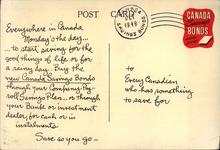 POST CARD
Everywhere in Canada
Monday's the day...
... to start saving for the
good things of life or for
a rainy day. Buy the
new Canada Savings Bonds
through your Company Pay-
roll Savings Plan.. or through
your Bank or investment
dealer, for cash or in
instalments.
Save as you go -
1949
SAVINGS BONDS
CANADA
BONDS
to
Every Canadian
who has something
to save for